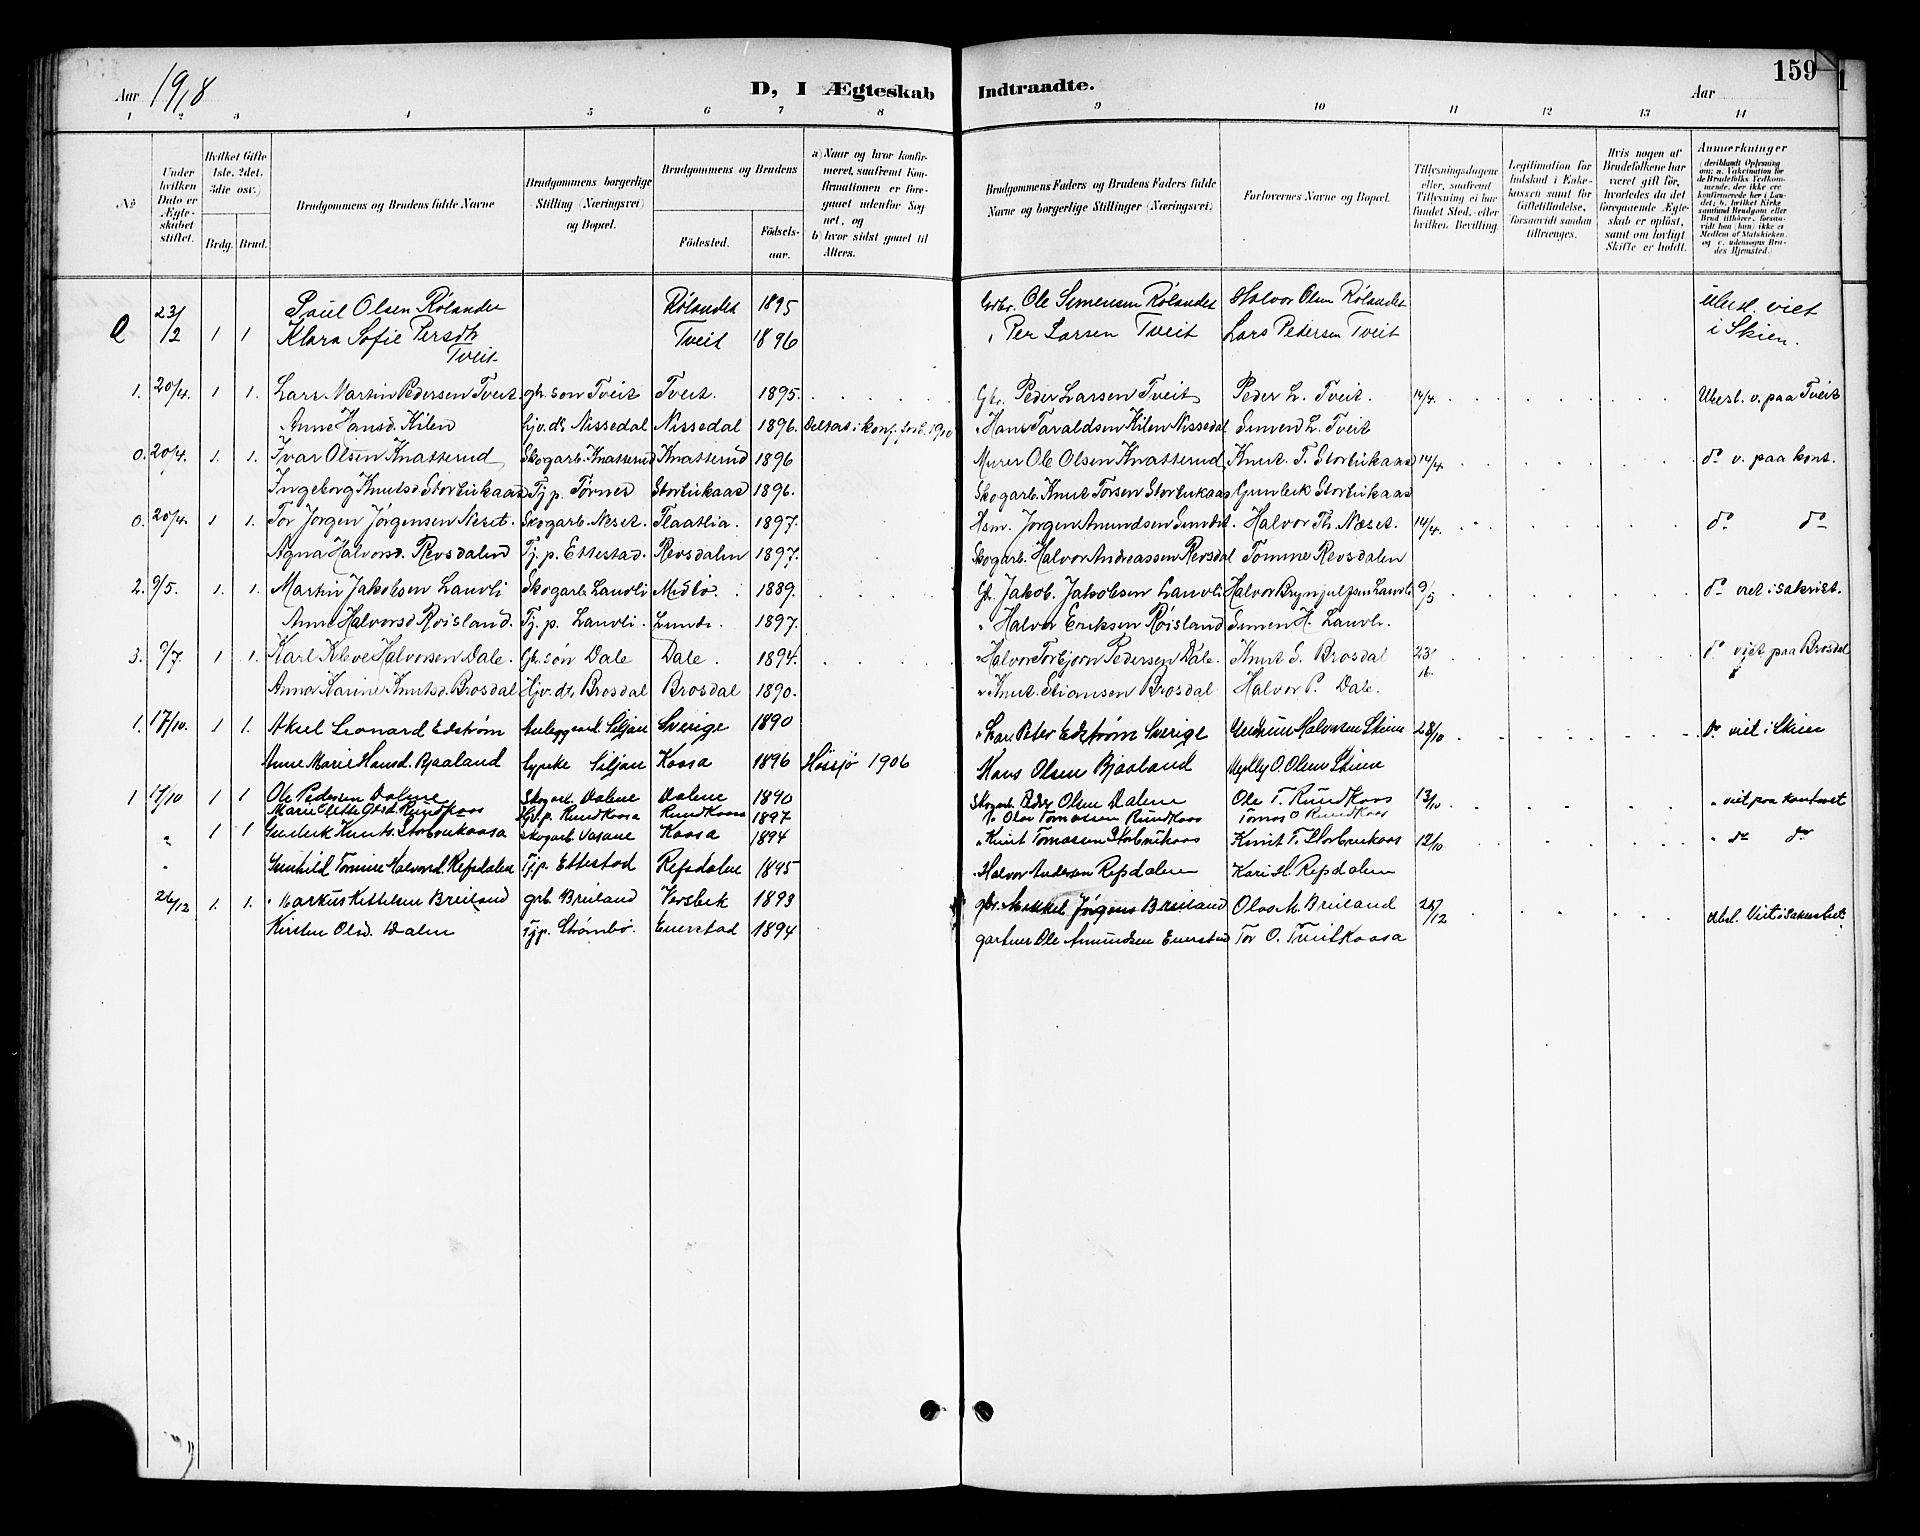 159
Aar 1918 D, I Ægteskab Indtraadte. Aar
1 2 3 4 5 6 7 8 9 10 11 12 13 14
№
Under hvilken Dato er Ægteskabet stiftet.
Hvilket Gifte 1ste, 2det, 3die osv.)
Brdg. Brud.
Brudgommens og Brudens fulde Navne
Brudgommens borgerlige Stilling (Næringsvei) og Bopæl.
Brudgommens og Brudens
Fødested. Fødselsaar.
a) Naar og hvor konfirmeret, saafremt Konfirmationen er foregaaet udenfor Sognet, og
b) hvor sidst gaaet til Alters.
Brudgommens Faders og Brudens Faders fulde Navne og borgerlige Stillinger (Næringsvei)
Forlovernes Navne og Bopæl.
Tillysningsdagene eller, saafremt Tillysning ei har fundet Sted, efter hvilken Bevilling.
Legitimation for Indskud i Enkekassen samt for Giftetilladelse, forsaavidt saadan tiltrænges.
Hvis nogen af Brudefolkene har været gift før, hvorledes da det foregaaende Ægteskab er opløst, samt om lovligt Skifte er holdt.
Anmerkninger (deriblandt Oplysning om: a. Vakcination for de Brudefolks Vedkommende, der ikke ere konfirmerede her i Landet; b. hvilket Kirkesamfund Brudgom eller Brud tilhører, forsaavidt han (hun) ikke er Medlem af Statskirken, og c. udensogns Brudes Hjemsted.)
23/12 1 1 Paul Olsen Rølandet Rølandet 1895 Grbr. Ole Simensen Rølandet Halvor Olsen Rølandet Uberl. viet
Klara Sofie Persdtr Tveit Tveit 1896 " Per Larsen Tveit Lars Pedersen Tveit i Skien.
1. 20/4. 1 1. Lars Martin Pedersen Tveit gb. søn Tveit Tveit. 1895. Gbr. Peder Larsen Tveit Peder L. Tveit. 14/4. Uberl. v. paa Tveit
Anne Hansd. Kilen Hjv. dtr Nissedal Nissedal 1896. Hans Taraldsen Kilen Nissedal Simen L. Tveit
0. 20/4. 1. 1. Ivar Olsen Knatterud Skogarb. Knatterud Knatterud 1896 Murer Ole Olsen Knatterud Knut T. Storbukaas 14/4. do v. paa kont.
Ingeborg Knutsd. Storbukaas Tj. p. Tørnes Storbukaas 1896. Skogarb. Knut Torsen Storbukaas Gunleik Storbukaas
0. 20/4. 1 1. Tor Jørgen Jørgensen Neset. Skogarb. Neset. Flaatlia. 1897. Hsm. Jørgen Amundsen Halvor Th. Næset. 14/4. do do
Agna Halvorsd. Revsdalen Tj. p. Ettestad. Revsdalen 1897. Skogarb. Halvor Andreassen Revsdal Tomine Revsdalen
2. 9/5. 1. 1. Martin Jakobsen Lauvli Skogarb. Lauvli Midbø. 1889. Gb. Jakob Jakobsen Lauvli Halvor Brynjulfsen Lauvli 9/5 do viet i sakrist.
Anne Halvorsd Røisland. Tj. p. Lauvli. Lunde. 1897. " Halvor Eriksen Røisland Simen H. Lauvli.
3. 9/7. 1 1. Karl Kleve Halvorsen Dale. Gb. søn Dale Dale. 1894. " Halvor Torbjørn Pedersen Dale. Knut S. Brosdal 23/16. do viet paa Brosdal
Anna Karine Knutsd. Brosdal Hjv. dtr. Brosdal Brosdal 1890. " Knut Stiansen Brosdal Halvor P. Dale.
1. 17/10. 1 1. Aksel Leonard Edstrøm Anleggsarb. Siljan Sverige 1890 " Lars Peter Edstrøm Sverige Halvorsen Skien 28/10 do viet i Skien
Anne Marie Hansd. Bjaaland Syerske Siljan Kaasa 1896 Høssjø 1906 Hans Olsen Bjaaland O. Olsen Skien
1 17/10 1 1 Ole Pedersen Dalene Skogarb. Dalene Dalene 1890 Skogarb. Peder Olsen Dalene Ole T. Rundkaas 13/10 " viet paa kontoret
Marie Olette Olsd. Rundkaas Tj. p. Rundkaasa Rundkaasa 1897 Olav Tomassen Rundkaas Tomas O Rundkaas
" 1 1 Gunleik Knuts. Storbrukaasa Skogarb. Vasane Kaasa 1894 " Knut Tomassen Storbrukaas Knut T. Storbrukaas 12/10 " do do
" Gunhild Tomine Halvorsd. Refsdalen Tj. p. Ettestad Refsdalen 1895 Halvor Andersen Refsdalen Kari H. Refsdalen
26/12 1. 1. Markus Kittelsen Breiland grb. Breiland Versbek 1893 gbr. Jørgens Breiland Olav M. Breiland 25/12 Uberl. Viet i Sakristiet.
Kirsten Olsd. Dalen Tjp. Strømbo. Enerstad 1894 gartner Ole Amundsen Enerstad Tor O. Tveitkaasa